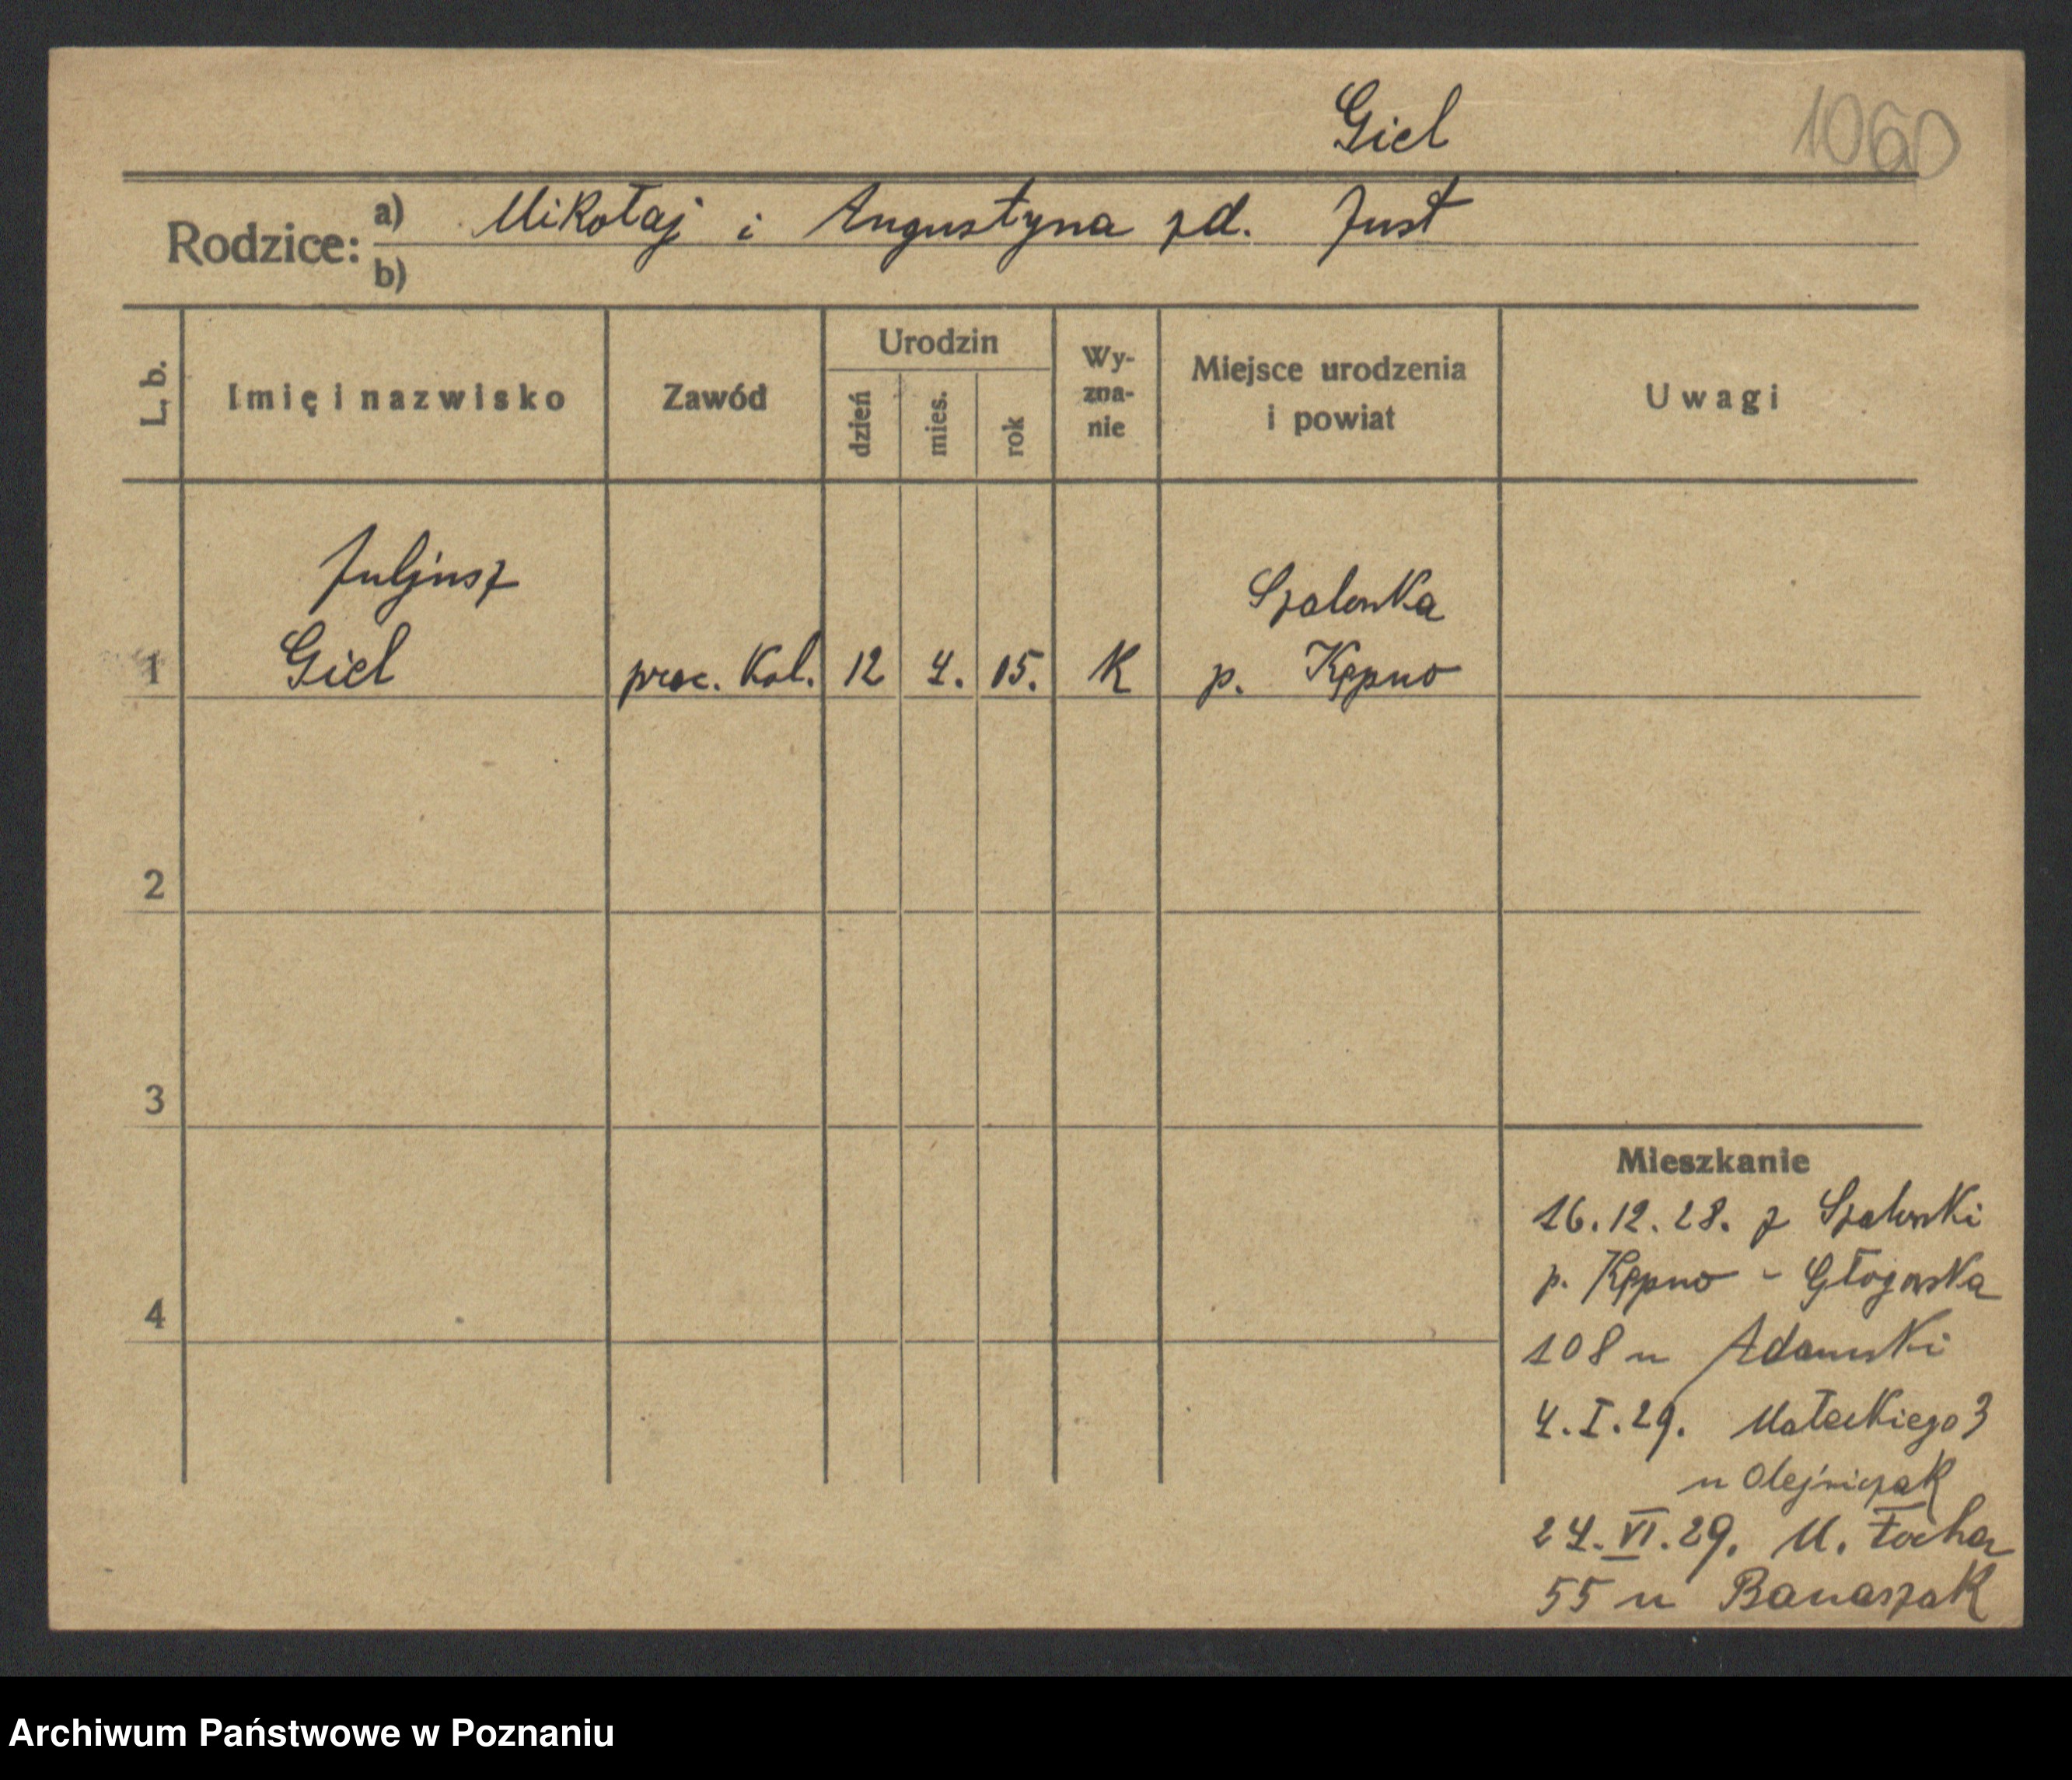 Giel
1060
Rodzice: a) Mikołaj i Augustyna zd. Just
b)
L. b. Imię i nazwisko Zawód Urodzin dzień mies. rok Wy-zna-nie Miejsce urodzenia i powiat Uwagi
Juljusz Szalonka
1 Giel prac. kol. 12 4. 05. K p. Kępno
2
3
4
Mieszkanie
16.12.28. z Szalonki
p. Kępno - Głogowska
108 u Adamski
4.I.29. Małeckiego 3
u Olejniczak
24.VI.29. M. Focha
55 u Banaszak
Archiwum Państwowe w Poznaniu